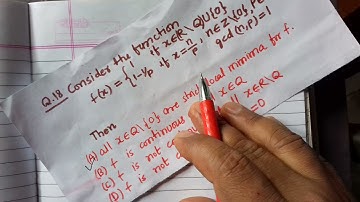 Q.18 Consider the function
if x∈R\Q∪{0}
f(x) = { 1-1/p if x = n/p, n∈Z\{0}, p∈
gcd(n,p)=1
Then
(A) all x∈Q\{0} are strict local minima for f.
(B) f is continuous x∈Q
(C) f is not x∈R\Q
(D) f is not =0